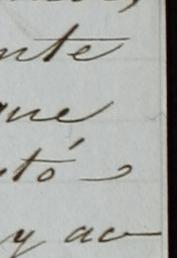 nte
que
tó,
y ac